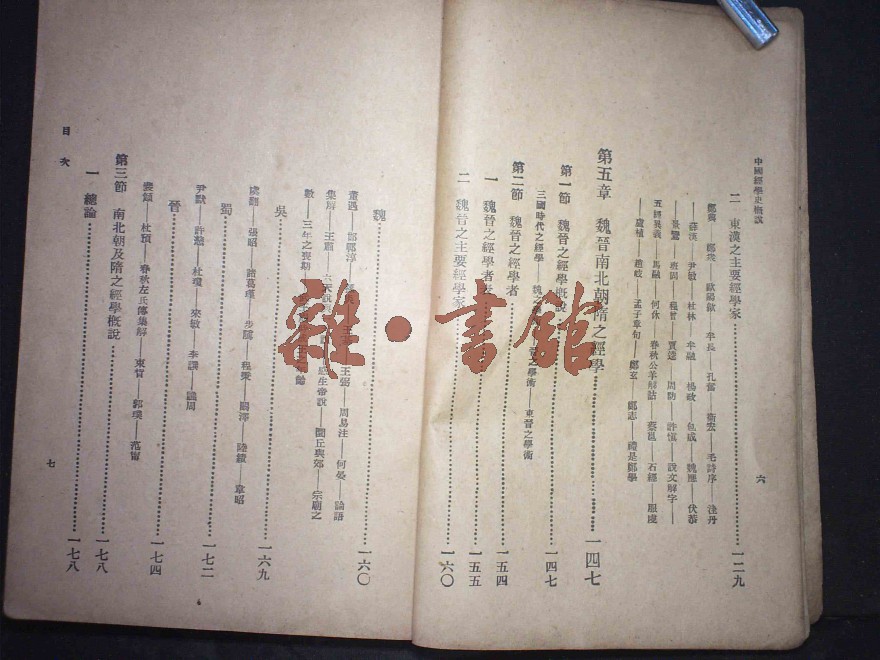 中國經學史概說
二 東漢之主要經學家 一二九
鄭興——鄭衆——歐陽歙 牟長——孔僖 衛宏——毛詩序——洼丹
——薛漢——尹敏 杜林——牟融 楊政 包咸——魏應——伏恭
——景鸞——班固 程曾——賈逵——周防——許慎——說文解字——
五經異義——馬融——何休——春秋公羊解詁——蔡邕——石經——服虔
——盧植——趙岐——孟子章句——鄭玄——鄭志——禮是鄭學
第五章 魏晉南北朝隋之經學 一四七
第一節 魏晉之經學槪說 一四七
三國時代之經學——東晉之學術
第二節 魏晉之經學者 一五四
一 魏晉之經學者 一五五
二 魏晉之主要經學家 一六〇
六
魏 一六〇
董遇——邯鄲淳 王弼——周易注——何晏——論語
集解——王肅——六天說 感生帝說——圜丘與郊——宗廟之
數——三年之喪期
吳 一六九
虞翻——張昭 諸葛瑾——步騭——程秉——闞澤——陸績——韋昭
蜀 一七二
尹默——許慈——杜瓊——來敏——李譔——譙周
晉 一七四
裴頠——杜預——春秋左氏傳集解——束晳——郭璞——范甯
第三節 南北朝及隋之經學槪說 一七八
一 總論 一七八
目次
七
雜·書館